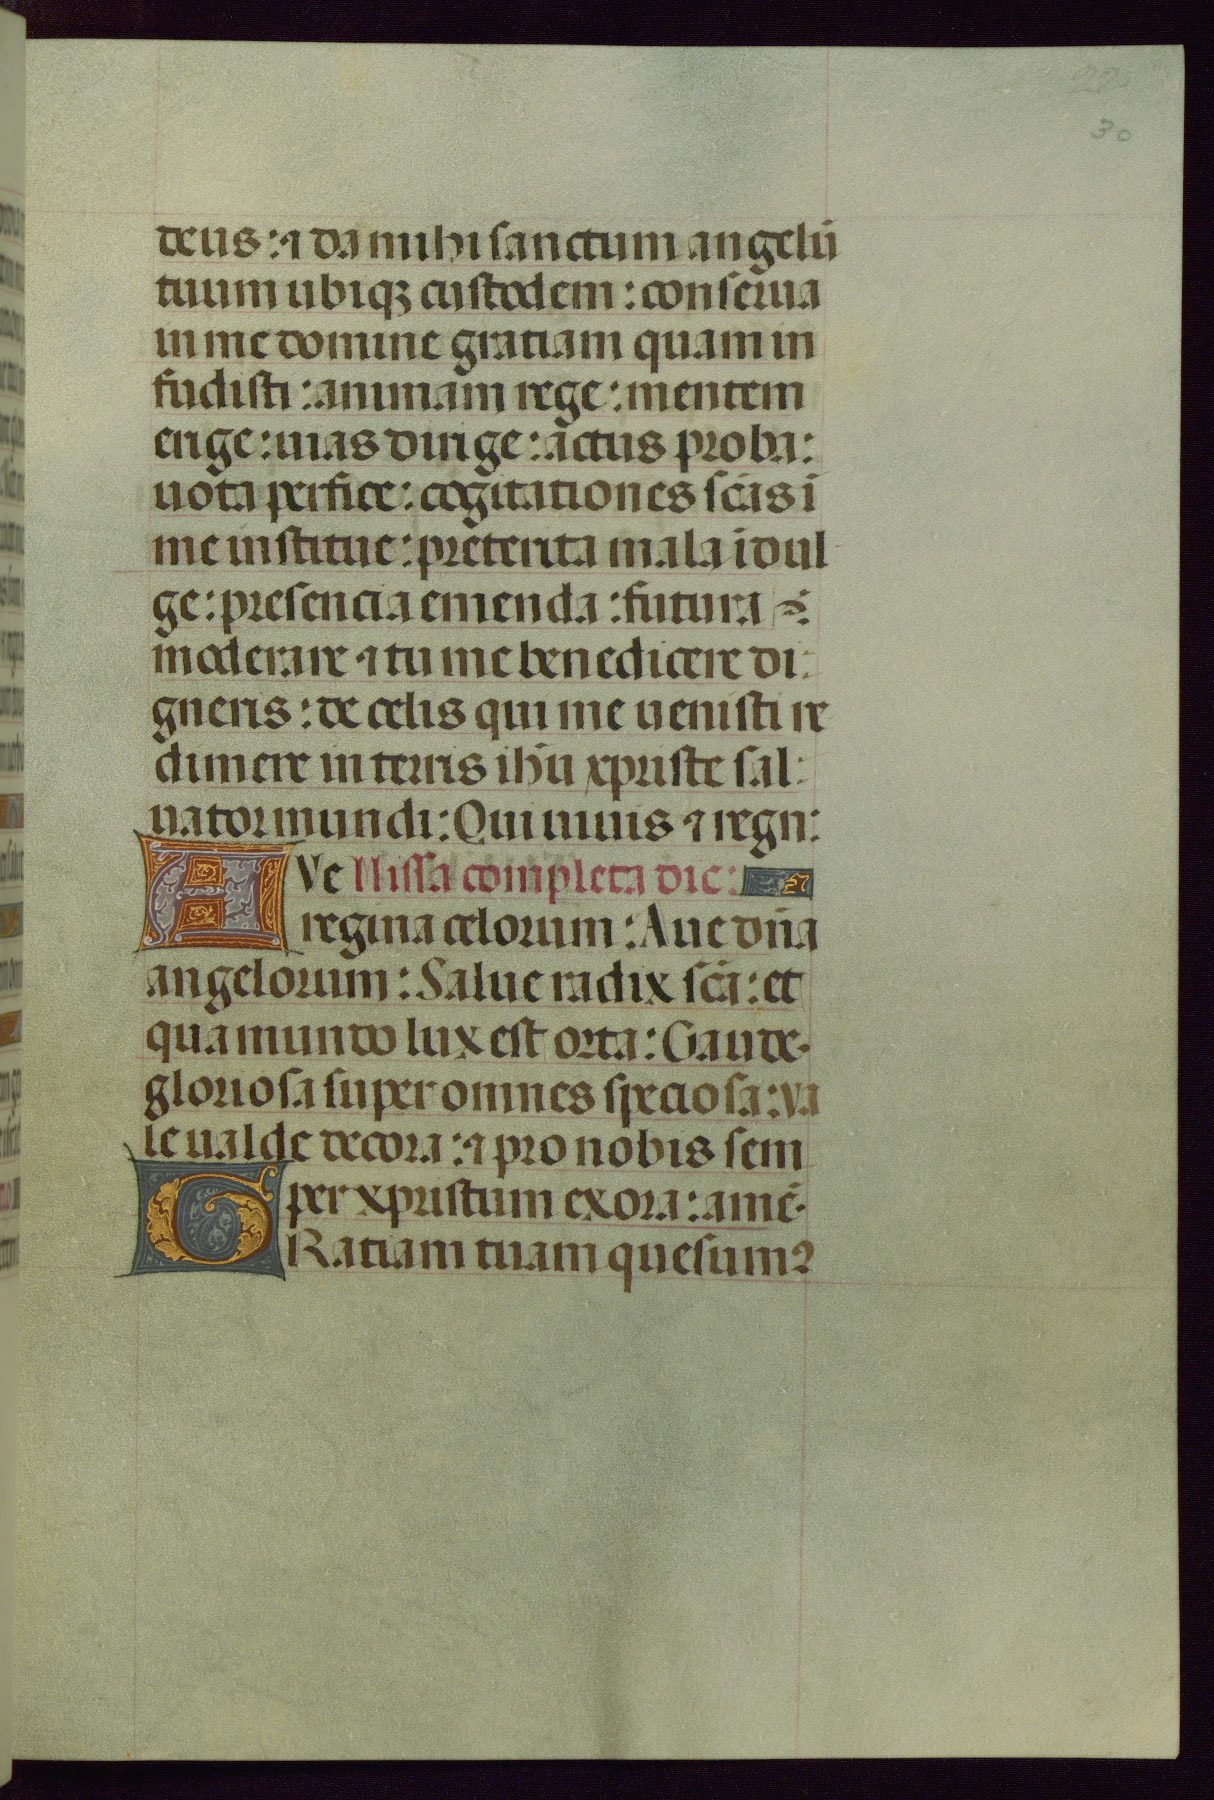 22
30
deus: ⁊ da mihi sanctum angelū
tuum ubiqꝫ custodem: conserua
in me domine gratiam quam in
fudisti: animam rege: mentem
erige: uias dirige: actus proba:
uota perfice: cogitationes scās ī
me institue: preterita mala īdul
ge: presencia emenda: futura
moderare ⁊ tu me benedicere di:
gneris: de celis qui me uenisti re
dimere in terris ihū xpriste sal:
uator mundi: Qui uiuis ⁊ regn:
AVe Missa completa dic:
regina celorum: Aue dn̄a
angelorum: Salue radix scā: et
qua mundo lux est orta: Gaude
gloriosa super omnes speciosa: va
le ualde decora: ⁊ pro nobis sem
per xpristum exora: amē.
GRatiam tuam quesumꝰ